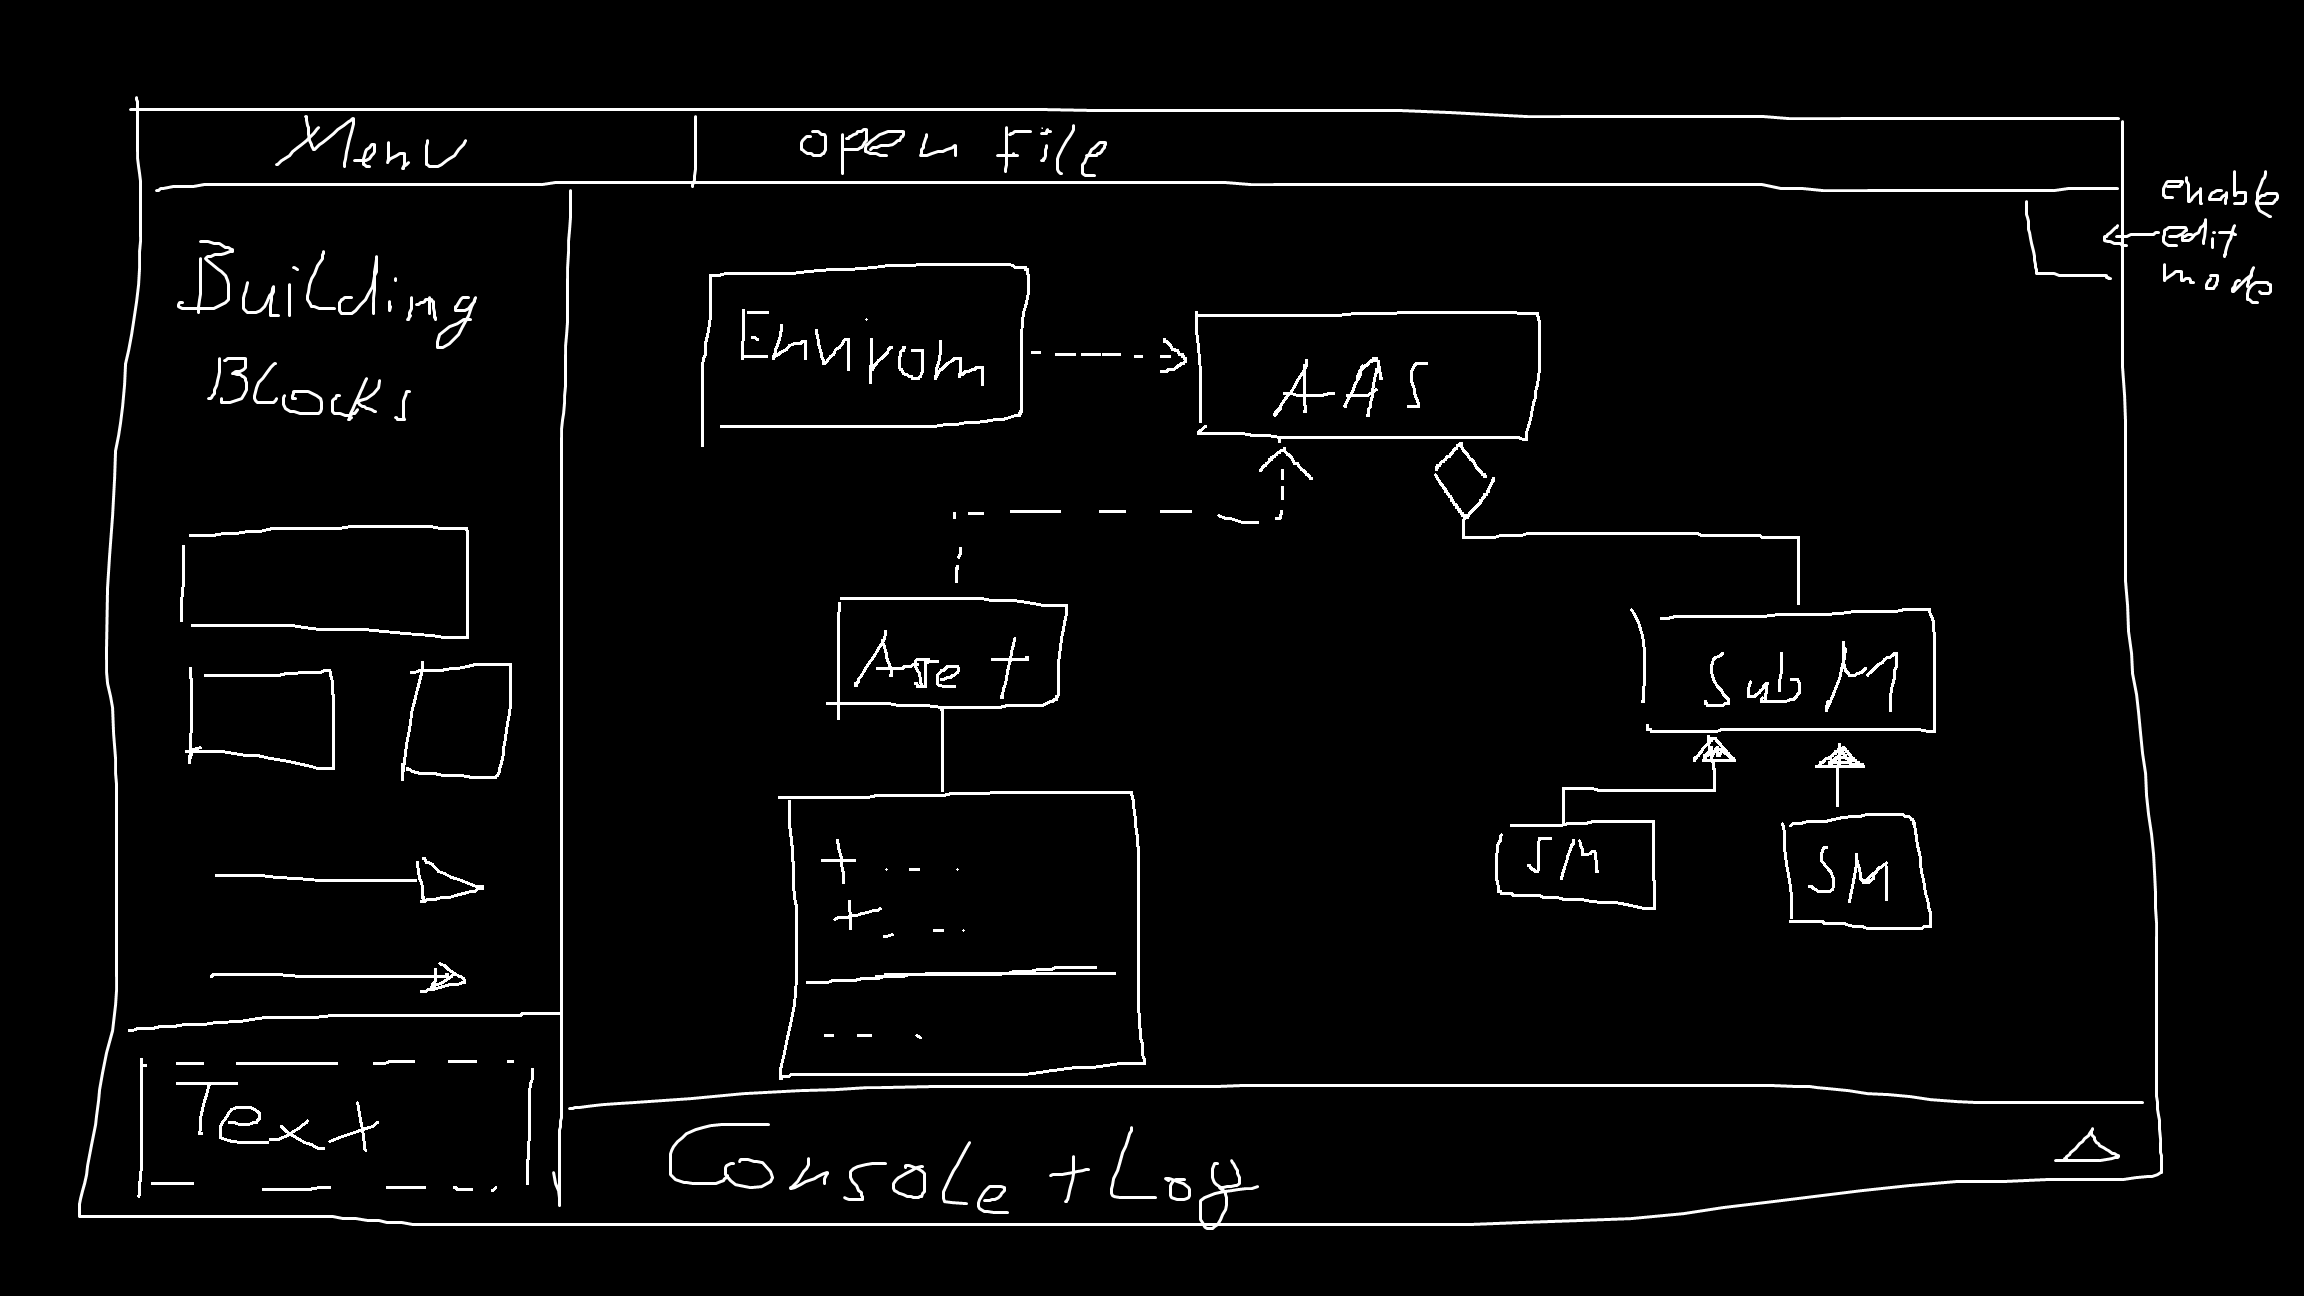 Menu
open File
enable
edit
mode
Building
Blocks
Envirom
AAS
Asset
Sub M
+ ----
+ ----
SM
SM
----
Text
Console + Log